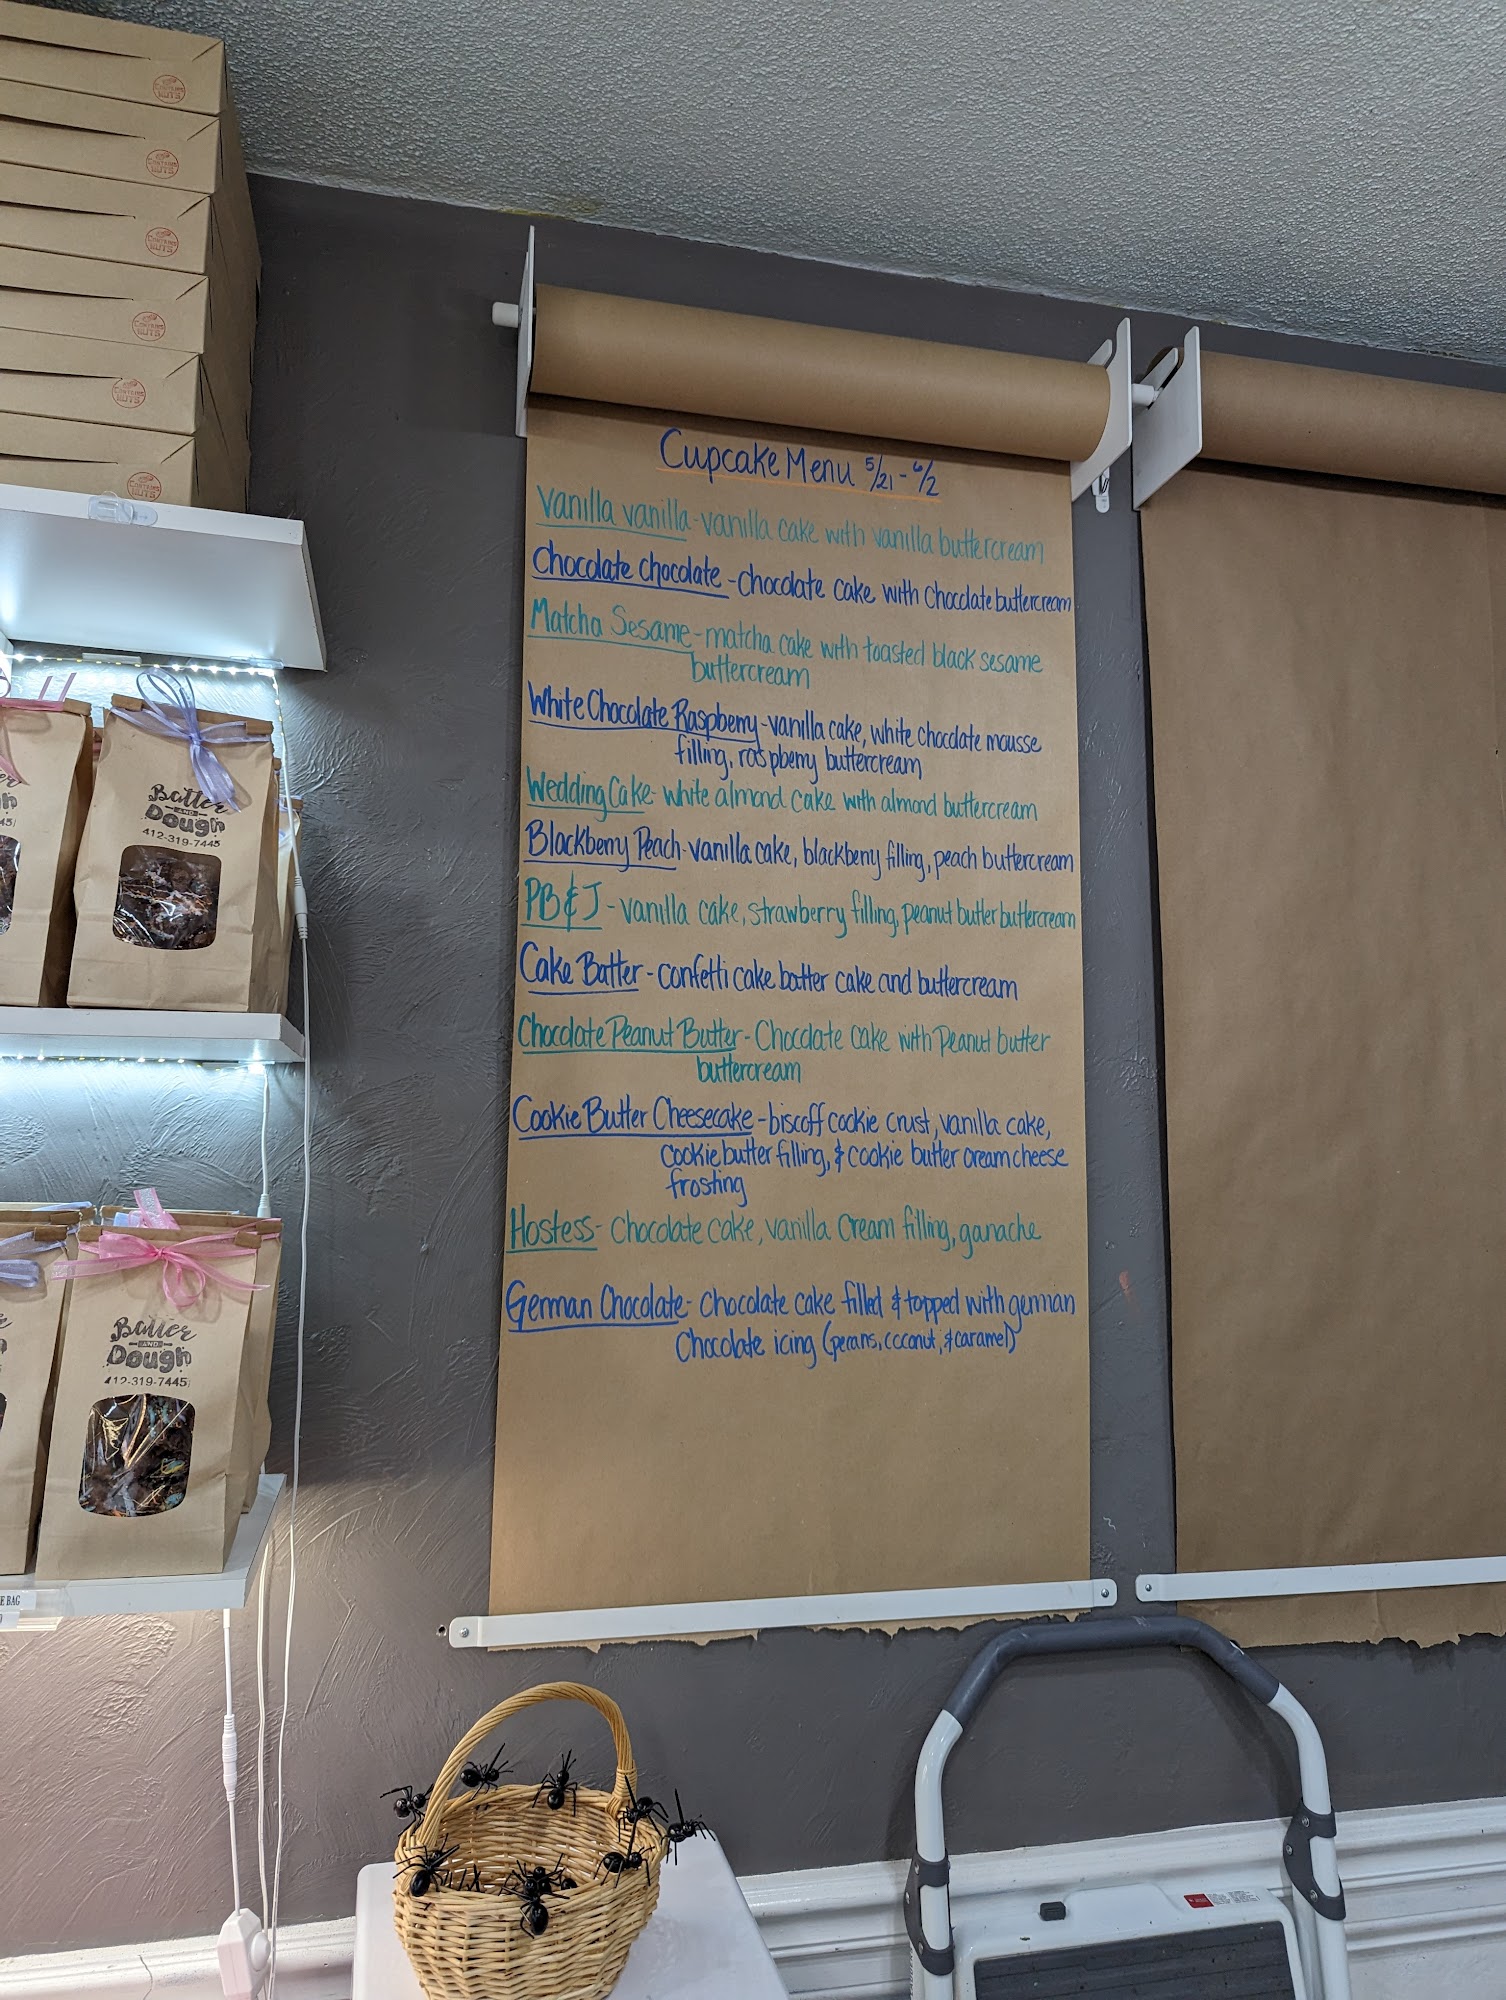 CONTAINS
NUTS
CONTAINS
NUTS
CONTAINS
NUTS
CONTAINS
NUTS
CONTAINS
NUTS
CONTAINS
NUTS
Cupcake Menu 5/21 - 6/2
Vanilla vanilla - vanilla cake with vanilla buttercream
Chocolate chocolate - chocolate cake with chocolate buttercream
Matcha Sesame - matcha cake with toasted black sesame
buttercream
White Chocolate Raspberry - vanilla cake, white chocolate mousse
filling, raspberry buttercream
Wedding Cake - white almond cake with almond buttercream
Blackberry Peach - vanilla cake, blackberry filling, peach buttercream
PB & J - vanilla cake, strawberry filling, peanut butter buttercream
Cake Batter - confetti cake batter cake and buttercream
Chocolate Peanut Butter - Chocolate cake with Peanut butter
buttercream
Cookie Butter Cheesecake - biscoff cookie crust, vanilla cake,
cookie butter filling, & cookie butter cream cheese
frosting
Hostess - Chocolate cake, vanilla cream filling, ganache
German Chocolate - Chocolate cake filled & topped with german
Chocolate icing (pecans, coconut, & caramel)
Batter
AND
Dough
412-319-7445
Batter
AND
Dough
412-319-7445
BAG